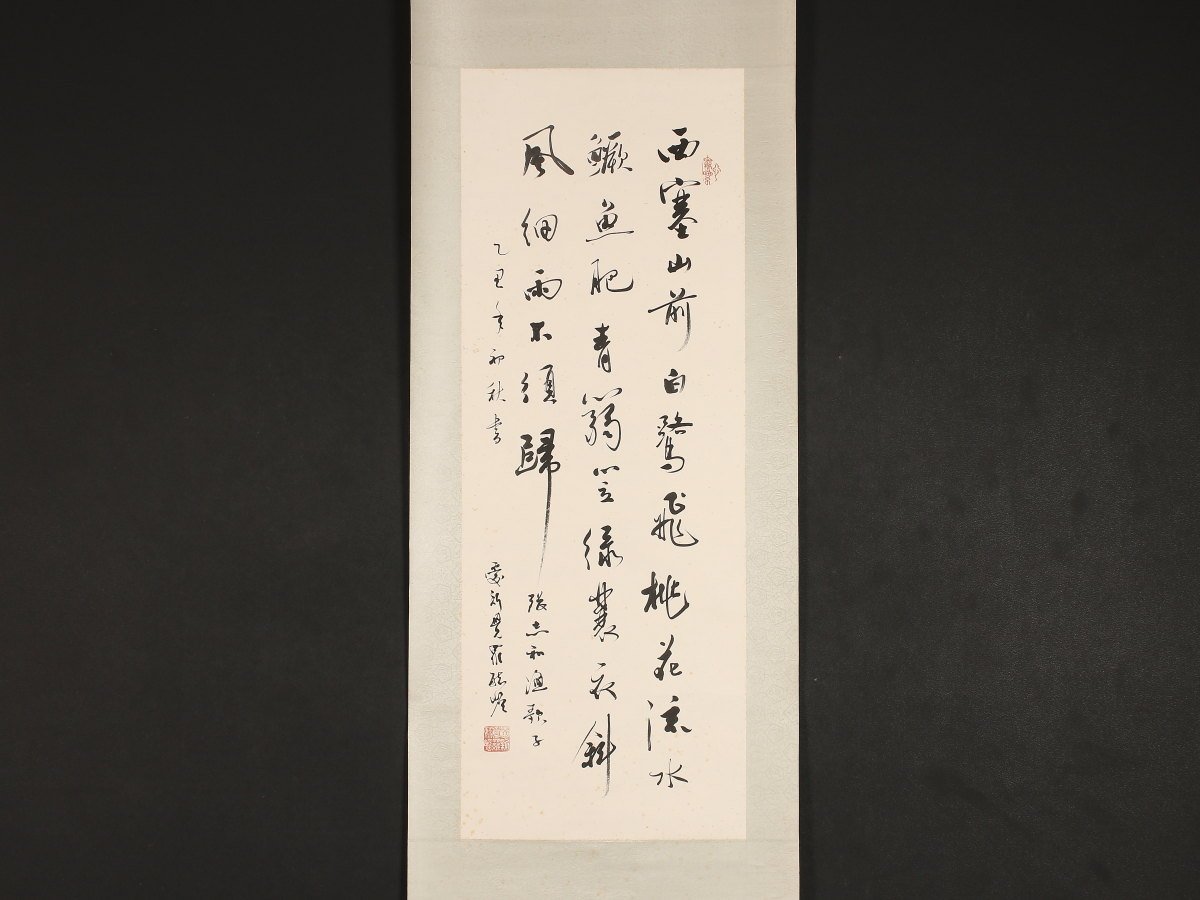 西塞山前白鷺飛桃花流水
鱖魚肥青篛笠綠蓑衣斜
風細雨不須歸
張志和漁歌子
乙丑年初秋書
愛新覺羅毓